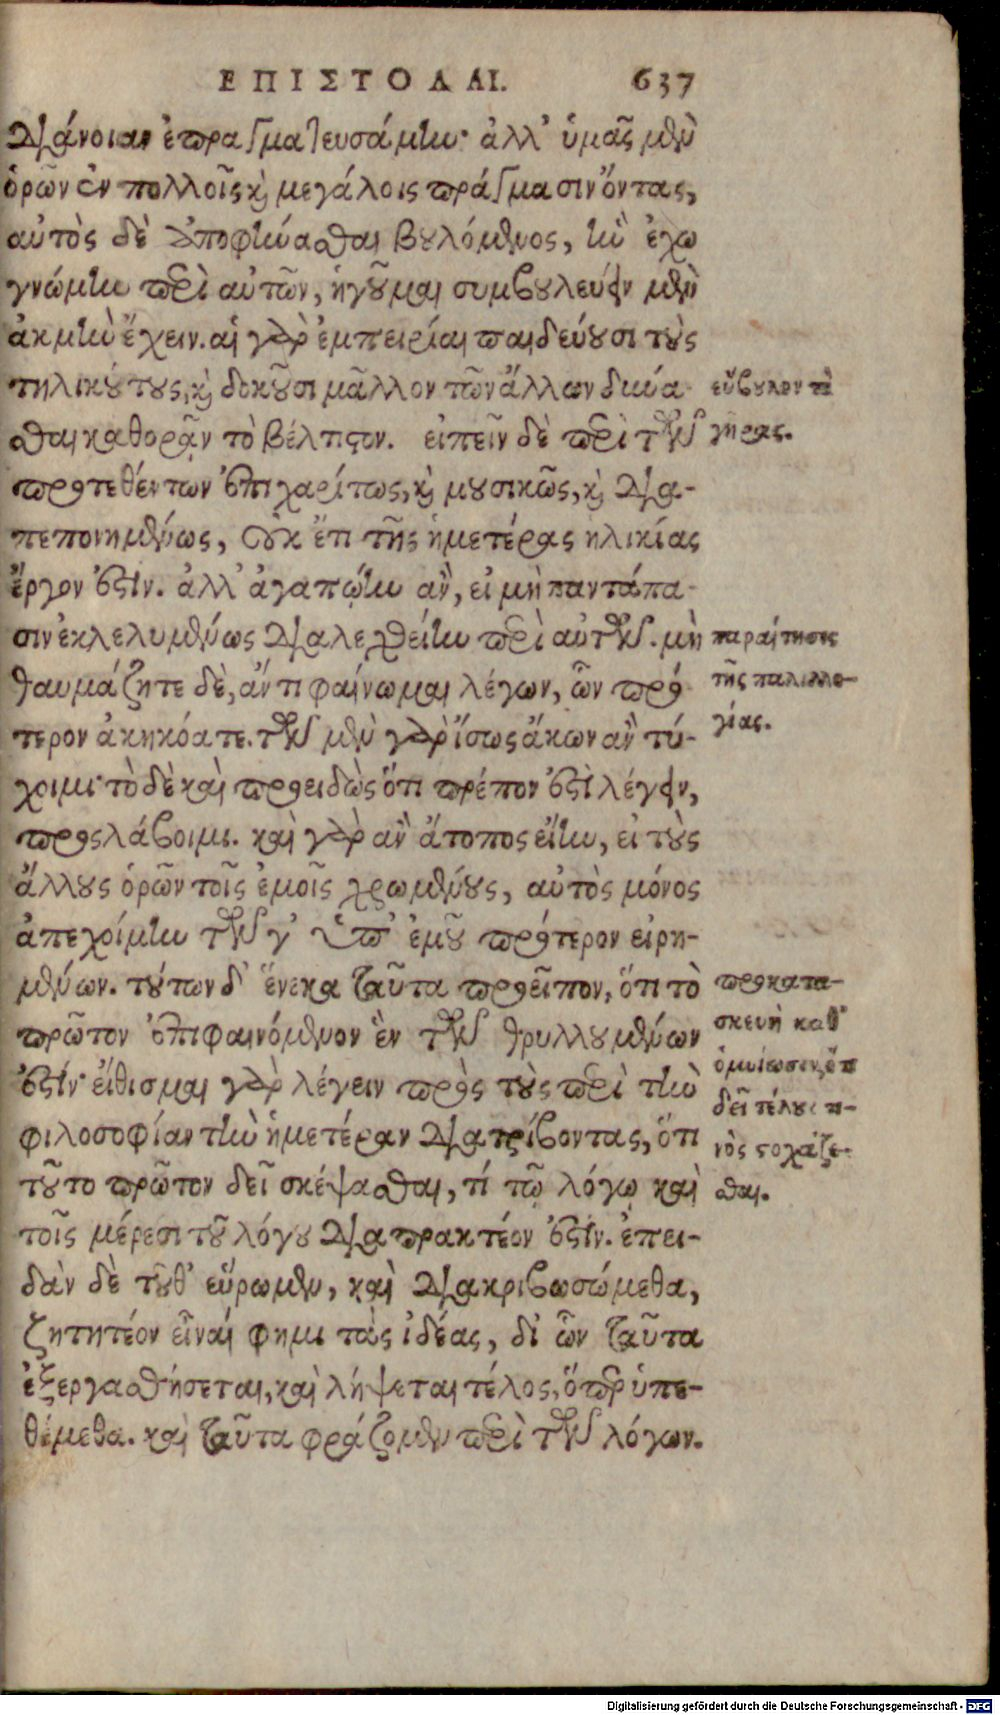 ΕΠΙΣΤΟΛΑΙ. 637
διάνοιαν ἐπραγματευσάμην· ἀλλ' ὑμᾶς μὲν
ὁρῶν ἐν πολλοῖς καὶ μεγάλοις πράγμασιν ὄντας,
αὐτὸς δὲ ἀποφήνασθαι βουλόμενος, ἣν ἔχω
γνώμην περὶ αὐτῶν, ἡγοῦμαι συμβουλεύειν μὲν
ἀκμὴν ἔχειν. αἱ γὰρ ἐμπειρίαι παιδεύουσι τοὺς
τηλικούτους, καὶ δοκοῦσι μᾶλλον τῶν ἄλλων δύνα-
σθαι καθορᾷν τὸ βέλτιστον. εἰπεῖν δὲ περὶ τῶν
προτεθέντων ἐπιχαρίτως, καὶ μουσικῶς, καὶ δια-
πεπονημένως, οὐκ ἔτι τῆς ἡμετέρας ἡλικίας
ἔργον ἐστίν. ἀλλ' ἀγαπῴην ἂν, εἰ μὴ παντάπα-
σιν ἐκλελυμένως διαλεχθείην περὶ αὐτῶν. μὴ
θαυμάζητε δὲ, ἄν τι φαίνωμαι λέγων, ὧν πρό-
τερον ἀκηκόατε. τῶν μὲν γὰρ ἴσως ἄκων ἂν τύ-
χοιμι· τὸ δὲ καὶ προειδὼς ὅτι πρέπον ἐστὶ λέγειν,
προσλάβοιμι. καὶ γὰρ ἂν ἄτοπος εἴην, εἰ τοὺς
ἄλλους ὁρῶν τοῖς ἐμοῖς χρωμένους, αὐτὸς μόνος
ἀπεχοίμην τῶν γ' ὑπ' ἐμοῦ πρότερον εἰρη-
μένων. τούτων δ' ἕνεκα ταῦτα προεῖπον, ὅτι τὸ
πρῶτον ἐπιφαινόμενον ἓν τῶν θρυλλουμένων
ἐστίν· εἴθισμαι γὰρ λέγειν πρὸς τοὺς περὶ τὴν
φιλοσοφίαν τὴν ἡμετέραν διατρίβοντας, ὅτι
τοῦτο πρῶτον δεῖ σκέψασθαι, τί τῷ λόγῳ καὶ
τοῖς μέρεσι τοῦ λόγου διαπρακτέον ἐστίν. ἐπει-
δὰν δὲ τοῦθ' εὕρωμεν, καὶ διακριβωσώμεθα,
ζητητέον εἶναί φημι τὰς ἰδέας, δι' ὧν ταῦτα
ἐξεργασθήσεται, καὶ λήψεται τέλος, ὅπερ ὑπε-
θέμεθα. καὶ ταῦτα φράζομεν περὶ τῶν λόγων.
εὔβουλον τὸ
γῆρας.
παραίτησις
τῆς παλιλλο-
γίας.
προκατα-
σκευὴ καθ'
ὁμοίωσιν, ὅτι
δεῖ τέλους τι-
νὸς στοχάζε-
σθαι.
Digitalisierung gefördert durch die Deutsche Forschungsgemeinschaft - DFG